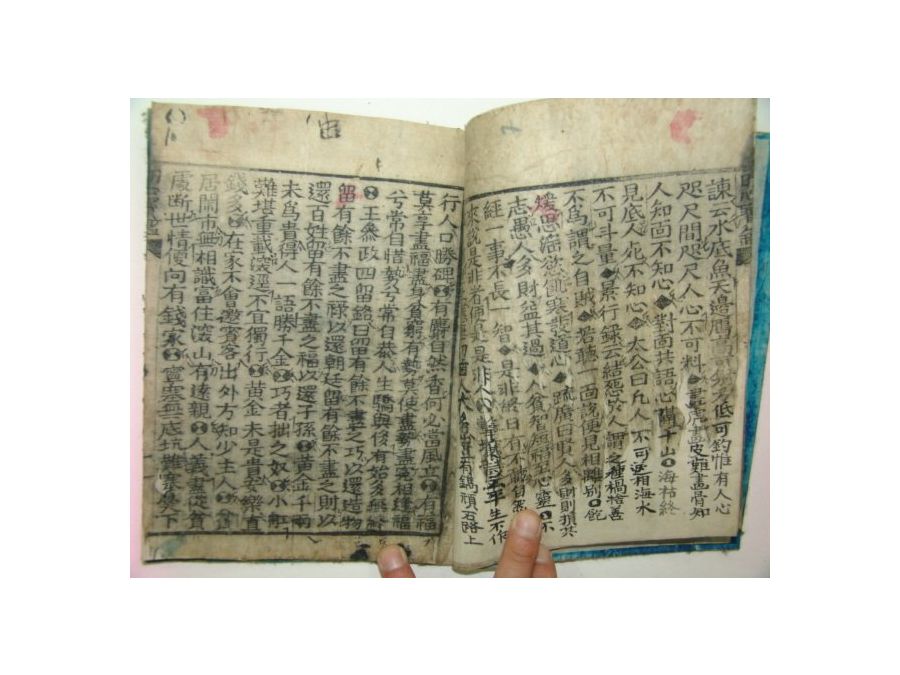 諫云水底魚天邊鴈高可射低可釣惟有人心
咫尺間咫尺人心不可料 畫虎畫皮難畫骨知
人知面不知心 對面共語心隔千山 海枯終
見底人死不知心 太公曰凡人不可逆相海水
不可斗量 景行録云結怨於人謂之種禍捨善
不爲謂之自賊 若聽一面說便見相離別 飽
煖思淫慾飢寒發道心 疏廣曰賢人多財則損其
志愚人多財益其過 人貧智短福至心靈 不
經一事不長一智 是非終日有不聽自然
來說是非者便是是非人 平生不作
有鐫頑石路上
行人口勝碑 有麝自然香何必當風立 有福
莫享盡福盡身貧窮有勢莫使盡勢盡寃相逢福
兮常自惜勢兮常自恭人生驕與侈有始多無終
王參政四留銘曰留有餘不盡之巧以還造物
留有餘不盡之祿以還朝廷留有餘不盡之財以
還百姓留有餘不盡之福以還子孫 黃金千兩
未爲貴得人一語勝千金 巧者拙之奴 小船
難堪重載深逕不宜獨行 黃金未是貴安樂直
錢多 在家不會邀賓客出外方知少主人 貧
居鬧市無相識富住深山有遠親 人義盡從貧
處斷世情便向有錢家 寧塞無底坑難塞鼻下